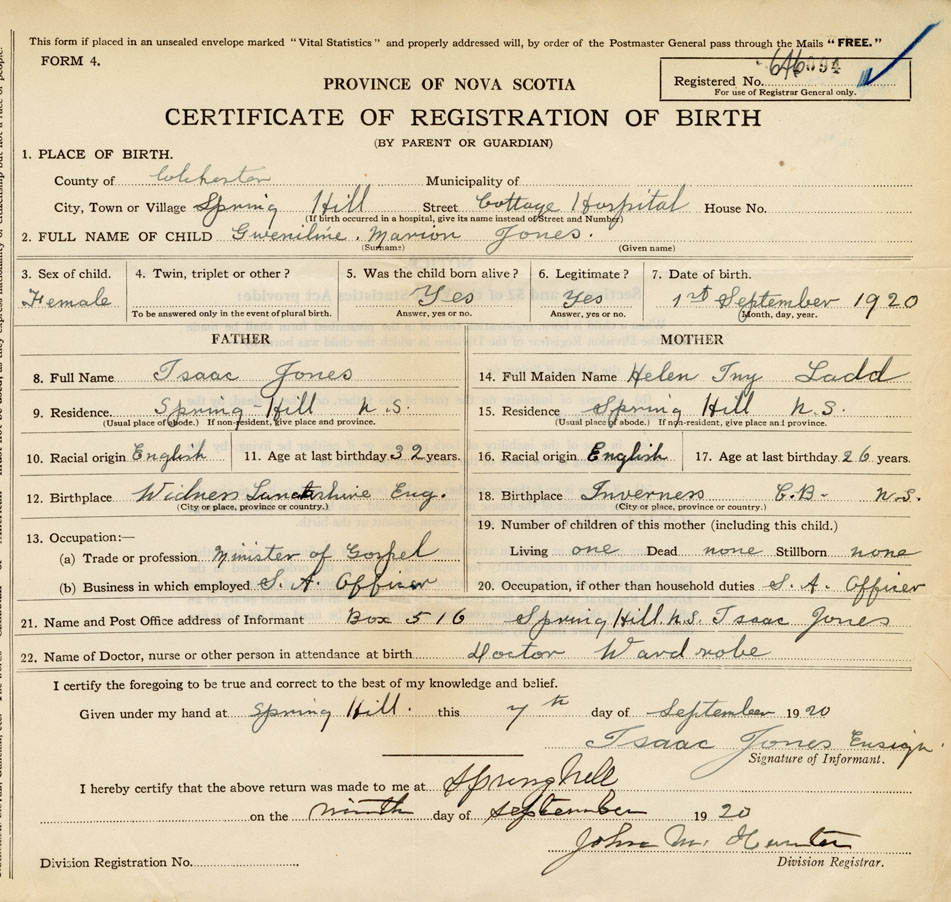 This form if placed in an unsealed envelope marked "Vital Statistics" and properly addressed will, by order of the Postmaster General pass through the Mails "FREE."
FORM 4.
Registered No.
For use of Registrar General only.
PROVINCE OF NOVA SCOTIA
CERTIFICATE OF REGISTRATION OF BIRTH
(BY PARENT OR GUARDIAN)
1. PLACE OF BIRTH.
County of Colchester Municipality of
City, Town or Village Spring Hill Street Cottage Hospital House No.
(If birth occurred in a hospital, give its name instead of Street and Number)
2. FULL NAME OF CHILD Gweniline. Marion Jones.
(Surname) (Given name)
3. Sex of child. 4. Twin, triplet or other? 5. Was the child born alive? 6. Legitimate? 7. Date of birth.
Female Yes Yes 1st September 1920
To be answered only in the event of plural birth. Answer, yes or no. Answer, yes or no. (Month, day, year.
FATHER MOTHER
8. Full Name Isaac Jones 14. Full Maiden Name Helen Ladd
9. Residence. Spring-Hill N.S. 15. Residence Spring Hill N.S.
(Usual place of abode.) If non-resident, give place and province. (Usual place of abode.) If non-resident, give place and province.
10. Racial origin English 11. Age at last birthday 32 years. 16. Racial origin English 17. Age at last birthday 26 years.
12. Birthplace Widness Lancashire Eng. 18. Birthplace Inverness C.B- N.S.
(City or place, province or country.) (City or place, province or country.)
19. Number of children of this mother (including this child.)
13. Occupation:—
(a) Trade or profession Minister of Gospel Living one Dead none Stillborn none
(b) Business in which employed S. A. Officer 20. Occupation, if other than household duties S. A. Officer
21. Name and Post Office address of Informant Box 516 Spring Hill N.S. Isaac Jones
22. Name of Doctor, nurse or other person in attendance at birth Doctor Wardrobe
I certify the foregoing to be true and correct to the best of my knowledge and belief.
Given under my hand at Spring Hill. this 7th day of September 1920
Isaac Jones Ensign.
Signature of Informant.
I hereby certify that the above return was made to me at Springhill
on the ninth day of September 1920
John M. Hunter
Division Registration No. Division Registrar.